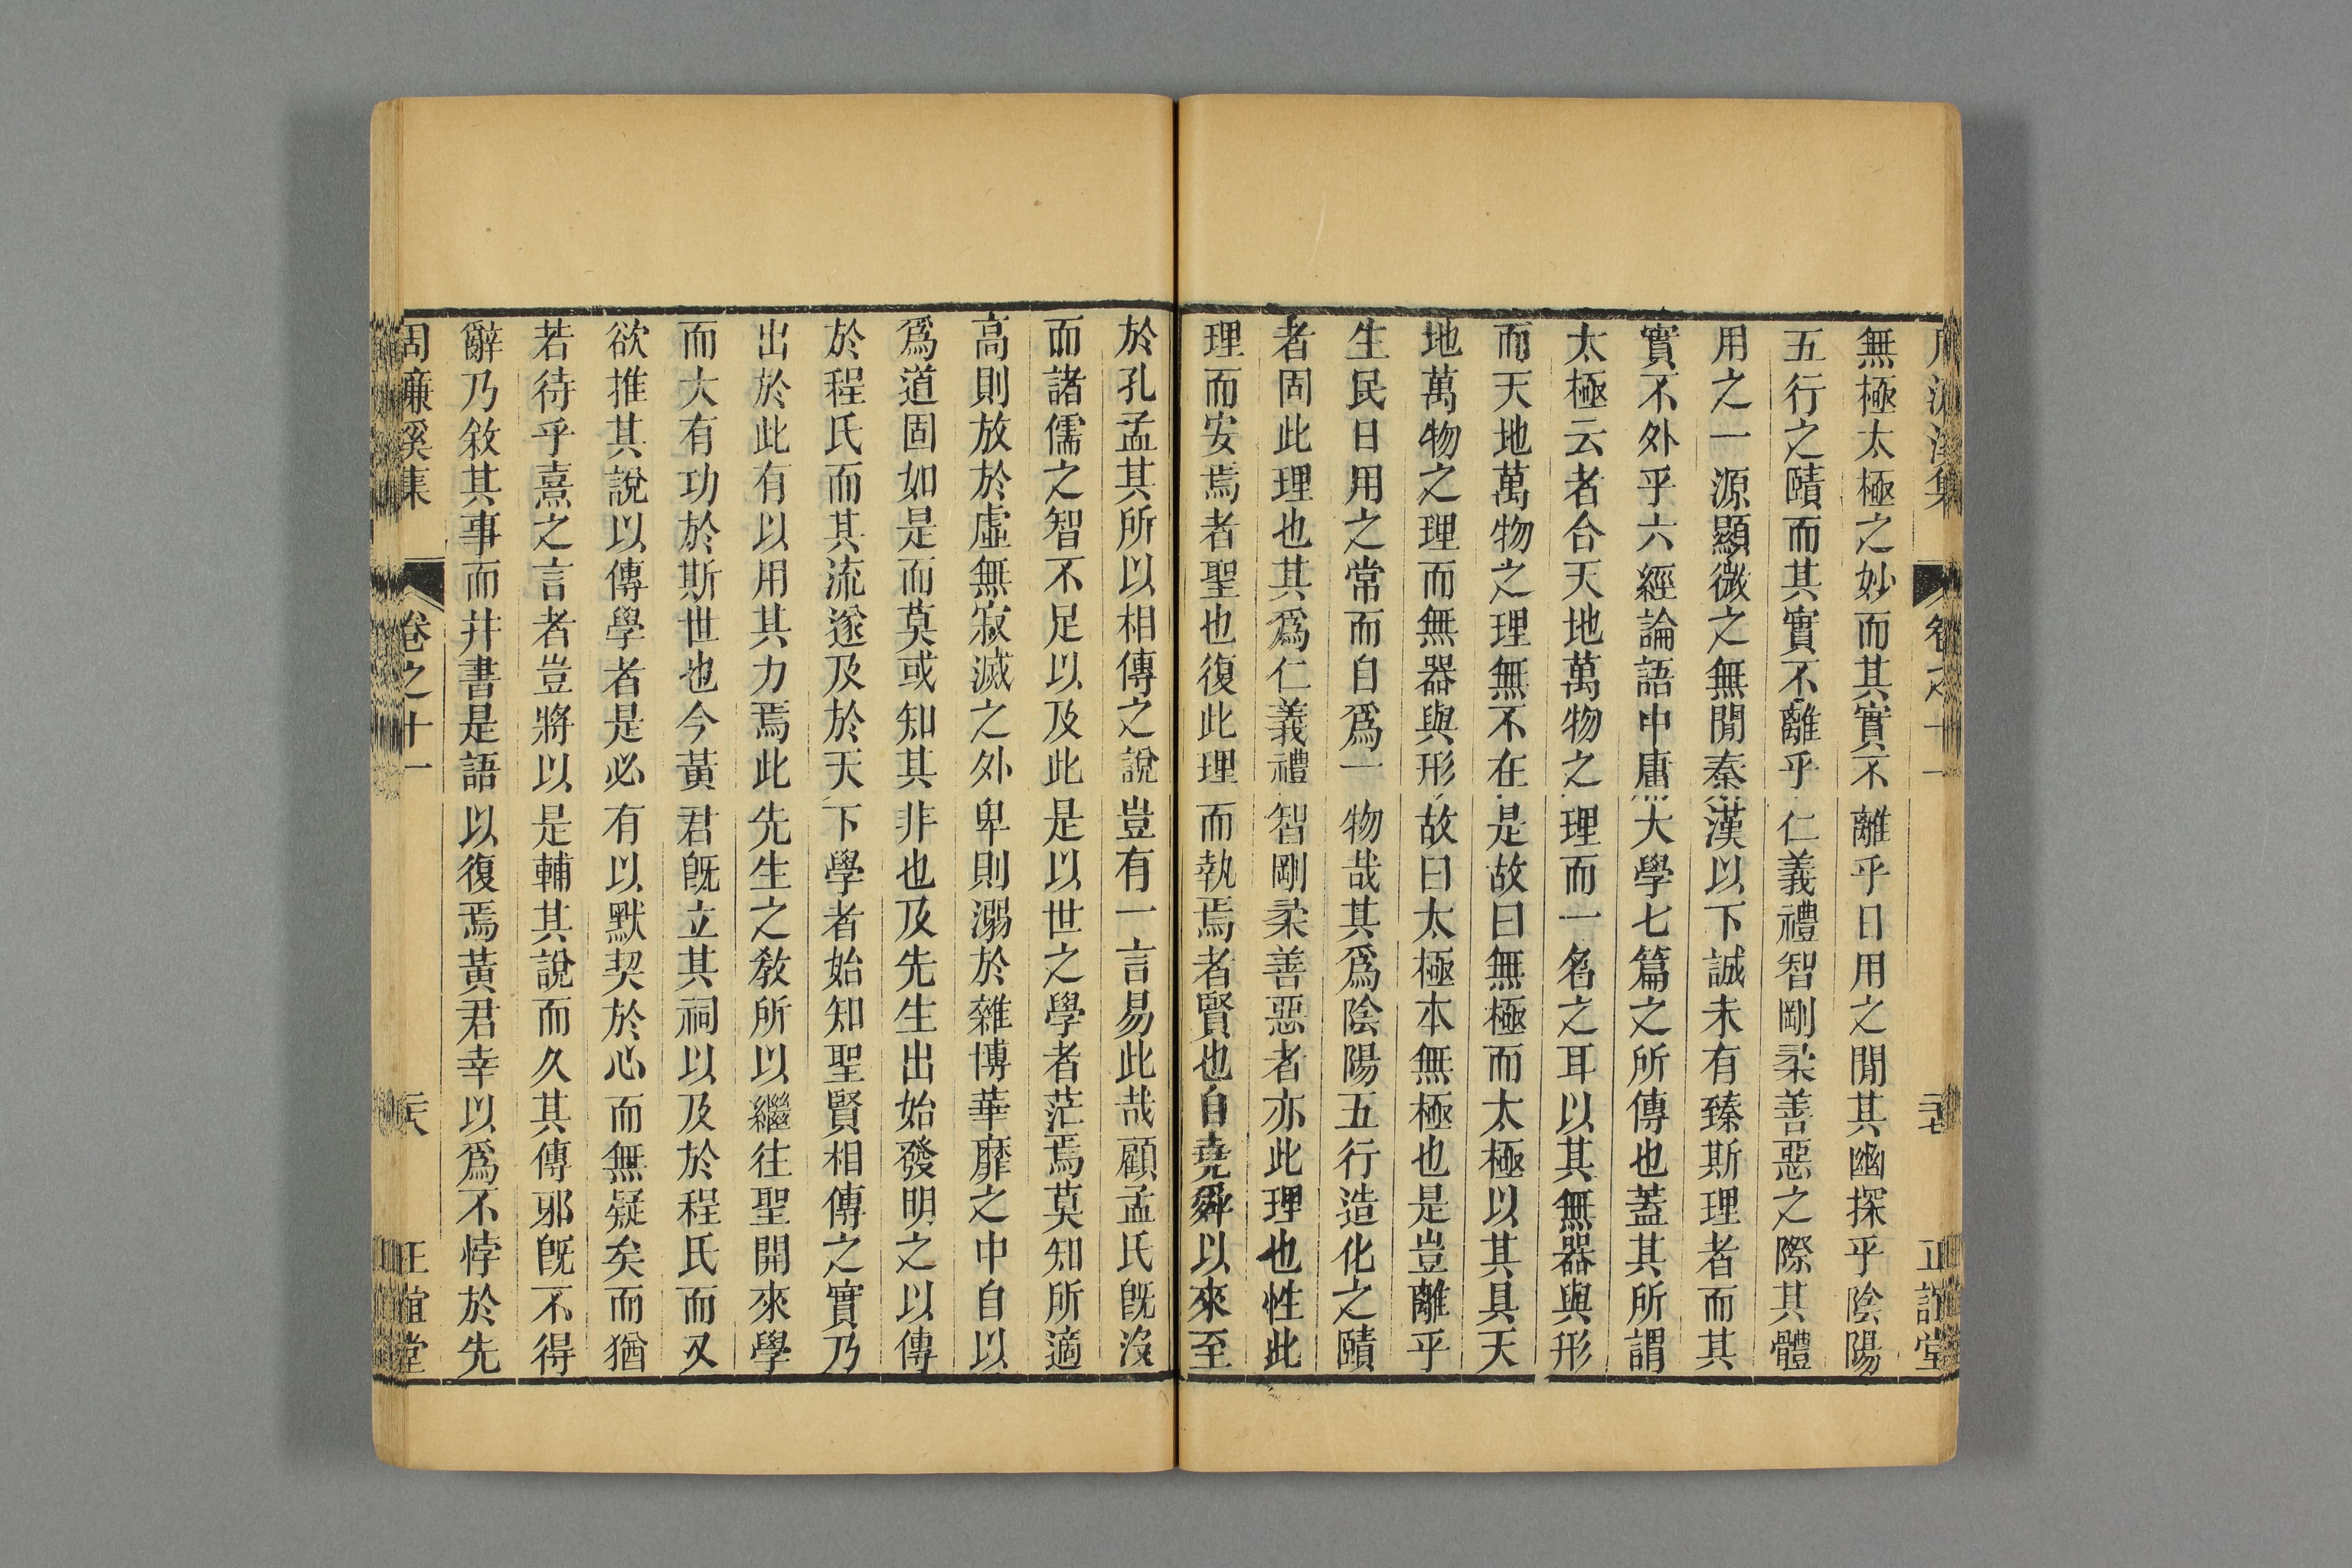 無極太極之妙而其實不離乎日用之閒其幽探乎陰陽
五行之賾而其實不離乎仁義禮智剛柔善惡之際其體
用之一源顯微之無閒秦漢以下誠未有臻斯理者而其
實不外乎六經論語中庸大學七篇之所傳也蓋其所謂
太極云者合天地萬物之理而一名之耳以其無器與形
而天地萬物之理無不在是故曰無極而太極以其具天
地萬物之理而無器與形故曰太極本無極也是豈離乎
生民日用之常而自爲一物哉其爲陰陽五行造化之賾
者固此理也其爲仁義禮智剛柔善惡者亦此理也性此
理而安焉者聖也復此理而執焉者賢也自堯舜以來至
於孔孟其所以相傳之說豈有一言易此哉顧孟氏旣沒
而諸儒之智不足以及此是以世之學者茫焉莫知所適
高則放於虛無寂滅之外卑則溺於雜博華靡之中自以
爲道固如是而莫或知其非也及先生出始發明之以傳
於程氏而其流遂及於天下學者始知聖賢相傳之實乃
出於此有以用其力焉此先生之教所以繼往聖開來學
而大有功於斯世也今黃君旣立其祠以及於程氏而又
欲推其說以傳學者是必有以默契於心而無疑矣而猶
若待乎熹之言者豈將以是輔其說而久其傳邪旣不得
辭乃敘其事而幷書是語以復焉黃君幸以爲不悖於先
周濂溪集
卷之十一
二八
正誼堂